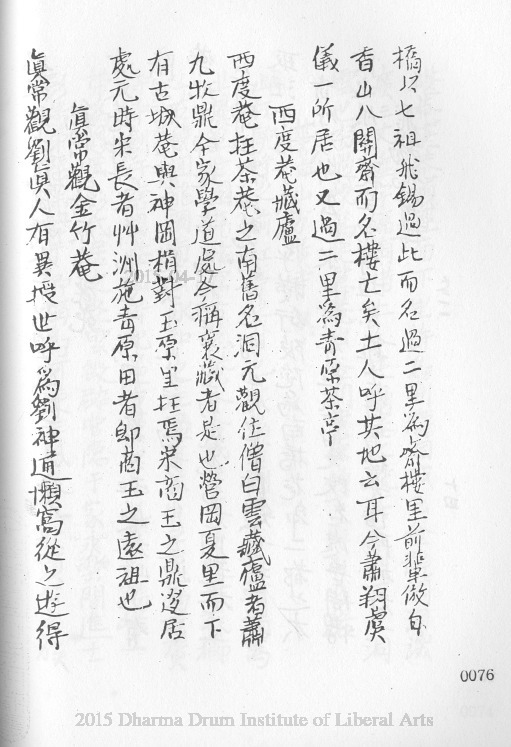 橋以七祖飛錫過此而名過二里為齋樓里前輩倣白
香山八關齋而名樓亡矣土人呼其地云耳今蕭翔虞
儀一所居也又過二里為青原茶亭
西度菴藏廬
西度菴在茶菴之南舊名洞元觀住僧白雲藏廬者蕭
九牧鼎今家學道處今稱襄藏者是也營岡夏里而下
有古城菴與神岡相對玉原里在焉宋商玉之鼎逕居
處元時宋長者艸洲施青原田者即商玉之遠祖也
眞常觀金竹菴
眞常觀劉眞人有異授世呼為劉神通懶窩從之遊得
0076
2015-04-17
2015 Dharma Drum Institute of Liberal Arts